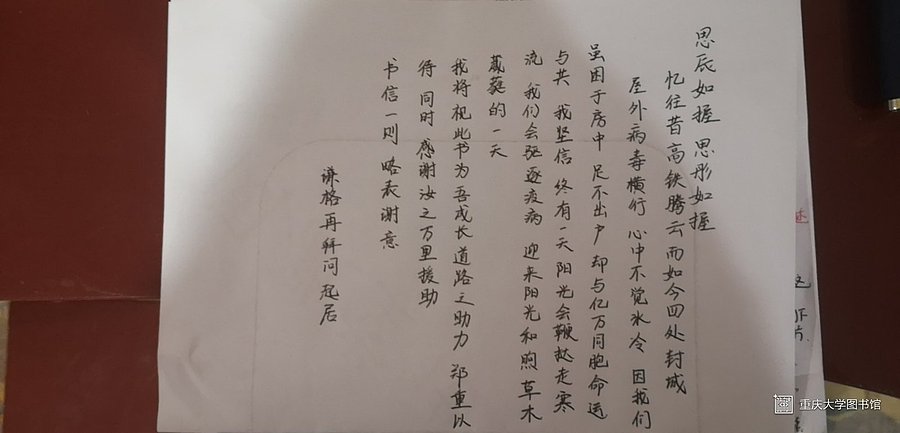 思辰如握 思彤如握
忆往昔高铁腾云而如今四处封城
屋外病毒横行 心中不觉冰冷 因我们
虽困于房中 足不出户 却与亿万同胞命运
与共 我坚信 终有一天阳光会鞭挞走寒
流 我们会驱逐疫病 迎来阳光和煦 草木
葳蕤的一天
我将视此书为吾成长道路之助力 郑重以
待 同时 感谢汝之万里援助
书信一则 略表谢意
谦格再拜问起居
重庆大学图书馆